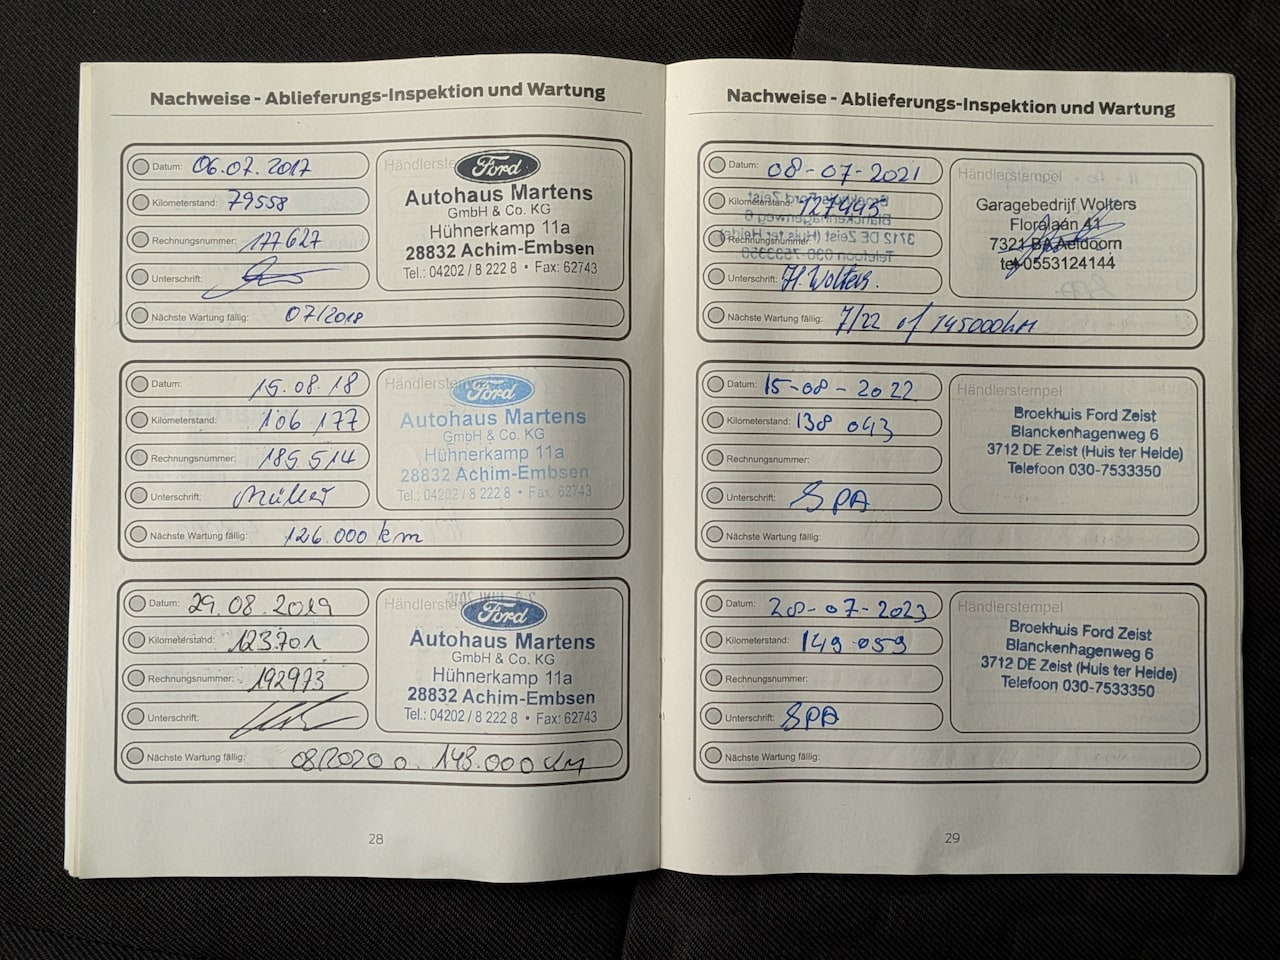 Nachweise - Ablieferungs-Inspektion und Wartung
Datum: 06.07.2017
Kilometerstand: 79558
Rechnungsnummer: 177627
Unterschrift:
Nächste Wartung fällig: 07/2018
Händlerste
Ford
Autohaus Martens
GmbH & Co. KG
Hühnerkamp 11a
28832 Achim-Embsen
Tel.: 04202 / 8 222 8 • Fax: 62743
Datum: 15.08.18
Kilometerstand: 106 177
Rechnungsnummer: 185514
Unterschrift: Müller
Nächste Wartung fällig: 126.000 km
Händlerste
Ford
Autohaus Martens
GmbH & Co. KG
Hühnerkamp 11a
28832 Achim-Embsen
Tel.: 04202 / 8 222 8 • Fax: 62743
Datum: 29.08.2019
Kilometerstand: 123.701
Rechnungsnummer: 192973
Unterschrift:
Nächste Wartung fällig: 08/2020 o. 143.000 km
Händlerste
Ford
Autohaus Martens
GmbH & Co. KG
Hühnerkamp 11a
28832 Achim-Embsen
Tel.: 04202 / 8 222 8 • Fax: 62743
28
Nachweise - Ablieferungs-Inspektion und Wartung
Datum: 08-07-2021
Kilometerstand: 127445
Rechnungsnummer:
Unterschrift: H. Wolters.
Nächste Wartung fällig: 7/22 of 145000km
Händlerstempel
Garagebedrijf Wolters
Floralaan 41
7321 BA Aeldoorn
tel 0553124144
Datum: 15-08-2022
Kilometerstand: 138 043
Rechnungsnummer:
Unterschrift: SPA
Nächste Wartung fällig:
Händlerstempel
Broekhuis Ford Zeist
Blanckenhagenweg 6
3712 DE Zeist (Huis ter Heide)
Telefoon 030-7533350
Datum: 28-07-2023
Kilometerstand: 149 059
Rechnungsnummer:
Unterschrift: SPA
Nächste Wartung fällig:
Händlerstempel
Broekhuis Ford Zeist
Blanckenhagenweg 6
3712 DE Zeist (Huis ter Heide)
Telefoon 030-7533350
29